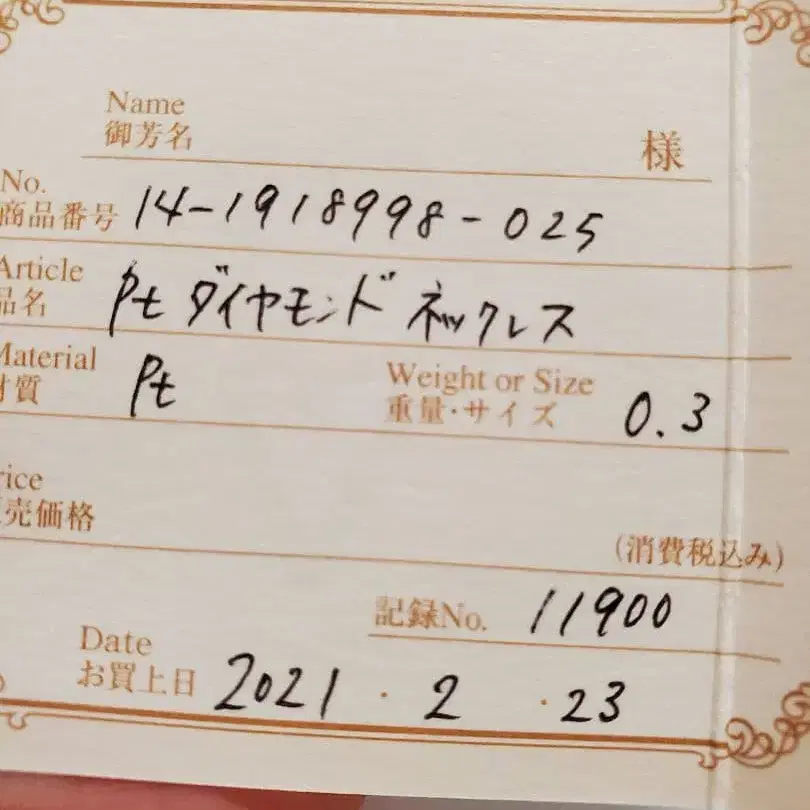 Name
御芳名 様
No.
商品番号 14-1918998-025
Article
品名 Pt ダイヤモンド ネックレス
Material Weight or Size
材質 Pt 重量・サイズ 0.3
rice
売価格
(消費税込み)
記録No. 11900
Date
お買上日 2021・2・23